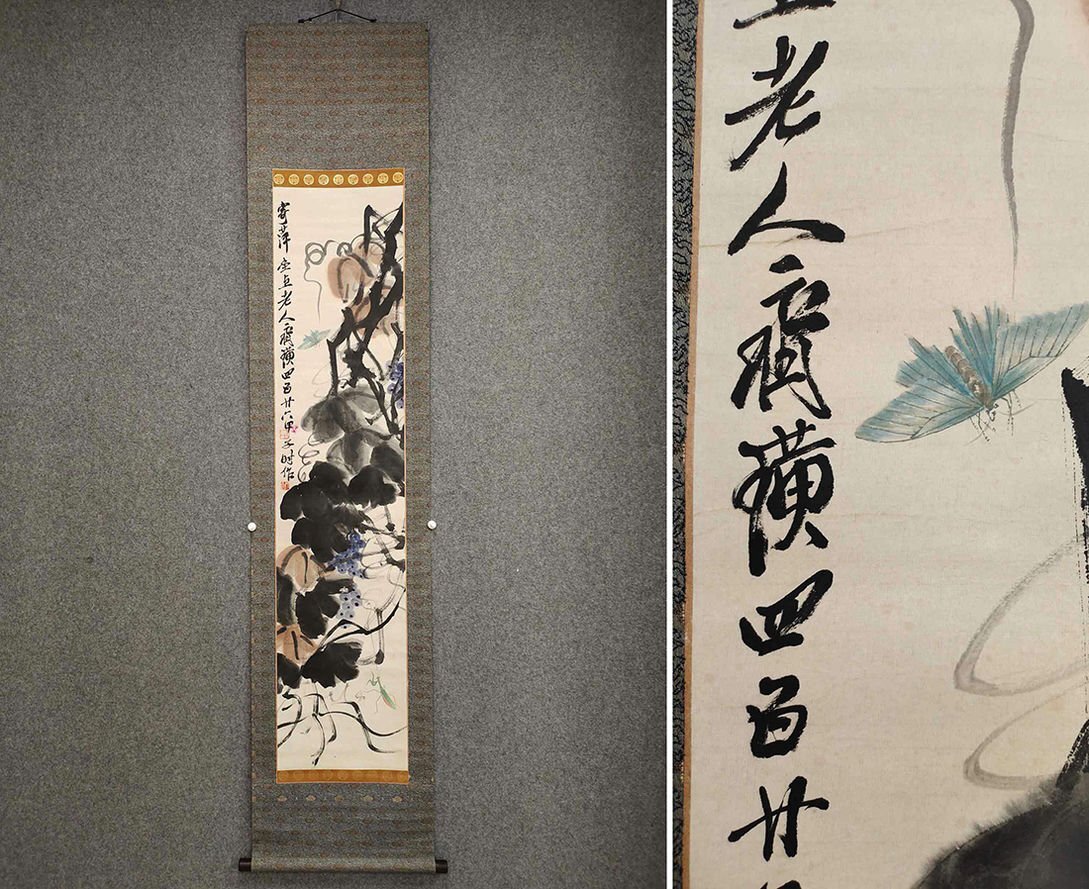 寄萍堂上老人齊璜四百廿六甲子時作
上老人齊璜四百廿